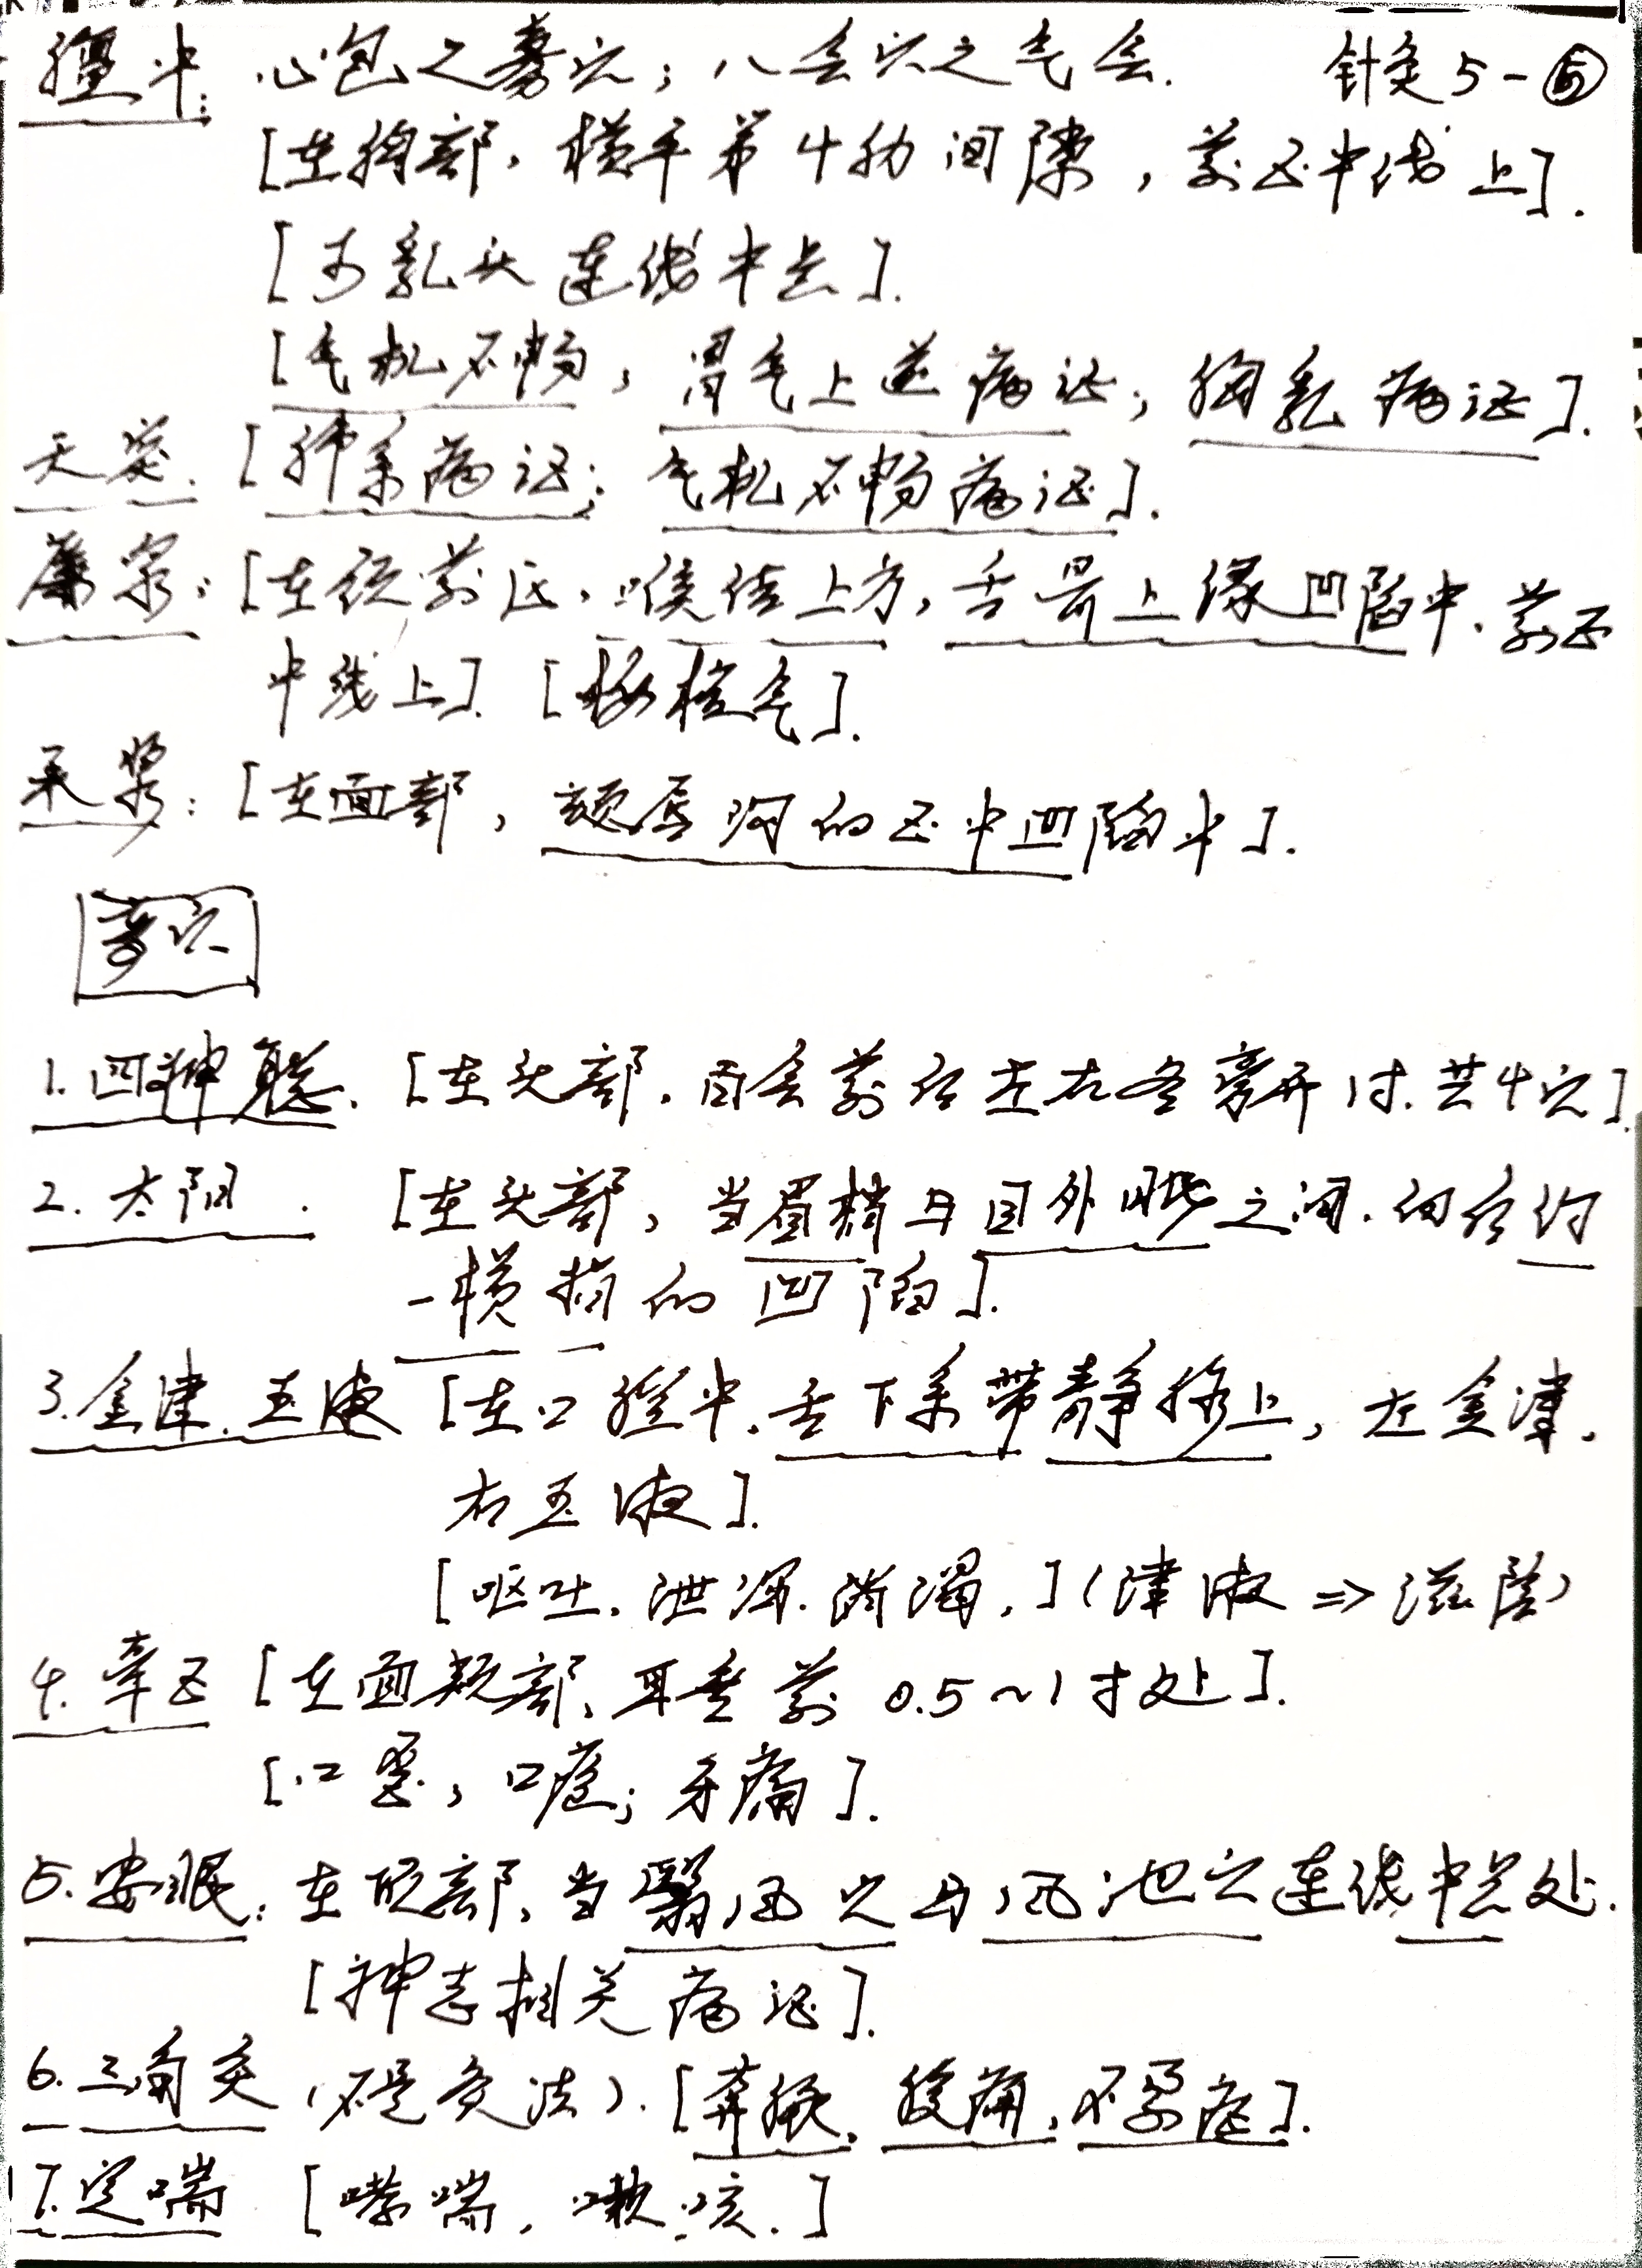 膻中: 心包之募穴；八会穴之气会. 针灸5-⑤
[在胸部，横平第4肋间隙，前正中线上].
[为乳头连线中点].
[气机不畅，胃气上逆病证；胸乳病证].
天突. [肺系病证；气机不畅病证].
廉泉：[在颈前区，喉结上方，舌骨上缘凹陷中，前正
中线上]. [梅核气].
承浆：[在面部，颏唇沟的正中凹陷中].
奇穴
1.四神聪. [在头部，百会前后左右各旁开1寸.共4穴].
2.太阳. [在头部，当眉梢与目外眦之间.向后约
一横指的凹陷].
3.金津.玉液 [在口腔中.舌下系带静脉上，左金津.
右玉液].
[呕吐.泄泻.消渴.](津液⇒滋阴)
4.牵正 [在面颊部，耳垂前0.5~1寸处].
[口歪，口疮；牙痛].
5.安眠：在项部，当翳风穴与风池穴连线中点处.
[神志相关病证].
6.三角灸(不是灸法).[奔豚.腹痛.不孕症].
7.定喘 [哮喘，咳嗽.]